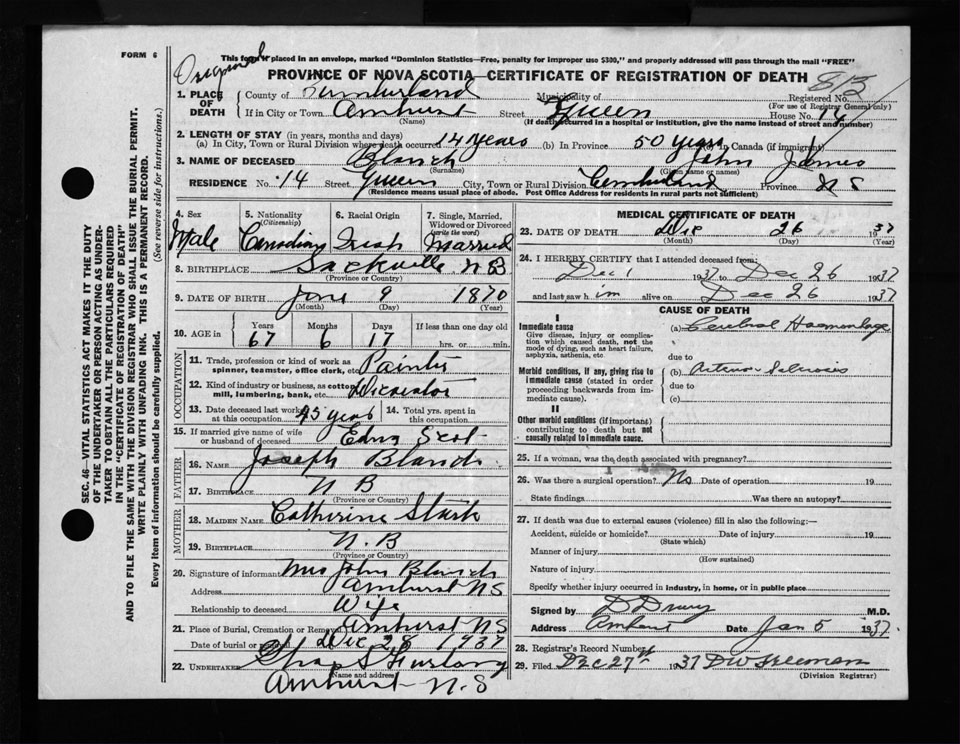 FORM 6
Original
This form if placed in an envelope, marked "Dominion Statistics—Free, penalty for improper use $300," and properly addressed will pass through the mail "FREE"
PROVINCE OF NOVA SCOTIA—CERTIFICATE OF REGISTRATION OF DEATH
813
1. PLACE OF DEATH { County of Cumberland Municipality of Registered No.
(For use of Registrar General only)
If in City or Town Amhurst Street Queen House No. 14
(Name) (If death occurred in a hospital or institution, give the name instead of street and number)
2. LENGTH OF STAY (in years, months and days)
(a) In City, Town or Rural Division where death occurred 14 years (b) In Province 50 years (c) In Canada (if immigrant)
3. NAME OF DECEASED Blanch John James
(Surname) (Given name or names)
RESIDENCE No. 14 Street Queen City, Town or Rural Division Cumberland Province N S
(Residence means usual place of abode. Post Office Address for residents in rural parts not sufficient)
4. Sex 5. Nationality (Citizenship) 6. Racial Origin 7. Single, Married, Widowed or Divorced (write the word)
Male Canadian Irish Married
8. BIRTHPLACE Sackville N B
(Province or Country)
9. DATE OF BIRTH June 9 1870
(Month) (Day) (Year)
10. AGE in Years Months Days If less than one day old
67 6 17 hrs. or min.
OCCUPATION
11. Trade, profession or kind of work as spinner, teamster, office clerk, etc. Painter
12. Kind of industry or business, as cotton mill, lumbering, bank, etc. Decorator
13. Date deceased last worked at this occupation 45 years 14. Total yrs. spent in this occupation
15. If married give name of wife or husband of deceased Edna
FATHER
16. Name Joseph Blanch
17. Birthplace N B
(Province or Country)
MOTHER
18. Maiden Name Catherine
19. Birthplace N. B
(Province or Country)
20. Signature of informant Mrs John Blanch
Address Amhurst N S
Relationship to deceased Wife
21. Place of Burial, Cremation or Removal Amhurst N S
Date of burial or removal Dec 28 1937
22. UNDERTAKER Chas S Furlong
(Name and address)
Amhurst N. S
MEDICAL CERTIFICATE OF DEATH
23. DATE OF DEATH Dec 26 1937
(Month) (Day) (Year)
24. I HEREBY CERTIFY that I attended deceased from
Dec 1 1937 to Dec 26 1937
and last saw him alive on Dec 26 1937
CAUSE OF DEATH
I
Immediate cause (a) Cerebral Haemorrhage
Give disease, injury or complication which caused death, not the mode of dying, such as heart failure, asphyxia, asthenia, etc.
due to
Morbid conditions, if any, giving rise to immediate cause (stated in order proceeding backwards from immediate cause).
(b) Arterio-Sclerosis
due to
(c)
II
Other morbid conditions (if important) contributing to death but not causally related to immediate cause.
25. If a woman, was the death associated with pregnancy?
26. Was there a surgical operation? No Date of operation 19
State findings Was there an autopsy?
27. If death was due to external causes (violence) fill in also the following:—
Accident, suicide or homicide? Date of injury 19
(State which)
Manner of injury
(How sustained)
Nature of injury
Specify whether injury occurred in industry, in home, or in public place
Signed by D Drury M.D.
Address Amherst Date Jan 5 1937
28. Registrar's Record Number
29. Filed Dec 27th 1937 D W Freeman
(Division Registrar)
SEC. 46—VITAL STATISTICS ACT MAKES IT THE DUTY
OF THE UNDERTAKER OR PERSON ACTING AS UNDER-
TAKER TO OBTAIN ALL THE PARTICULARS REQUIRED
IN THE "CERTIFICATE OF REGISTRATION OF DEATH"
AND TO FILE THE SAME WITH THE DIVISION REGISTRAR WHO SHALL ISSUE THE BURIAL PERMIT.
WRITE PLAINLY WITH UNFADING INK. THIS IS A PERMANENT RECORD.
Every item of information should be carefully supplied. (See reverse side for instructions.)